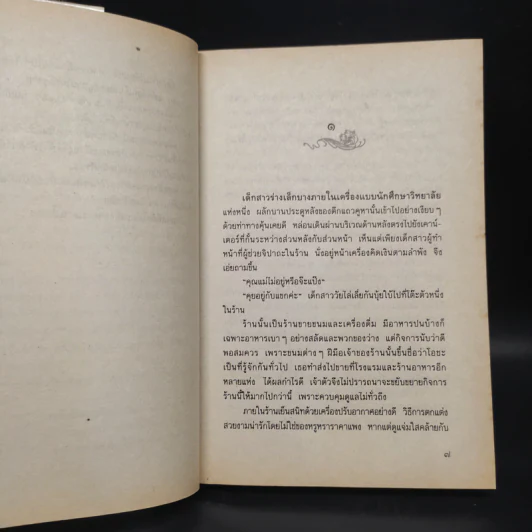 ๑
เด็กสาวร่างเล็กบางภายในเครื่องแบบนักศึกษาวิทยาลัย
แห่งหนึ่ง ผลักบานประตูหลังของตึกแถวคูหานั้นเข้าไปอย่างเงียบๆ
ด้วยท่าทางคุ้นเคยดี หล่อนเดินผ่านบริเวณด้านหลังตรงไปยังเคาน์-
เตอร์ที่กั้นระหว่างส่วนหลังกับส่วนหน้า เห็นแต่เพียงเด็กสาวผู้ทำ
หน้าที่ผู้ช่วยจิปาถะในร้าน นั่งอยู่หน้าเครื่องคิดเงินตามลำพัง จึง
เอ่ยถามขึ้น
"คุณแม่ไม่อยู่หรือจ๊ะแป๊ง"
"คุยอยู่กับแขกค่ะ" เด็กสาววัยไล่เลี่ยกันบุ้ยใบ้ไปที่โต๊ะตัวหนึ่ง
ในร้าน
ร้านนั้นเป็นร้านขายขนมและเครื่องดื่ม มีอาหารปนบ้างก็
เฉพาะอาหารเบาๆ อย่างสลัดและพวกของว่าง แต่กิจการนับว่าดี
พอสมควร เพราะขนมต่างๆ ฝีมือเจ้าของร้านนั้นขึ้นชื่อว่าโอชะ
เป็นที่รู้จักกันทั่วไป เธอทำส่งไปขายที่โรงแรมและร้านอาหารอีก
หลายแห่ง ได้ผลกำไรดี เจ้าตัวจึงไม่ปรารถนาจะขยับขยายกิจการ
ร้านนี้ให้มากไปกว่านี้ เพราะควบคุมดูแลไม่ทั่วถึง
ภายในร้านเย็นสนิทด้วยเครื่องปรับอากาศอย่างดี วิธีการตกแต่ง
สวยงามน่ารักโดยไม่ใช้ของหรูหราราคาแพง หากแต่ดูแจ่มใสคล้ายกับ
๗